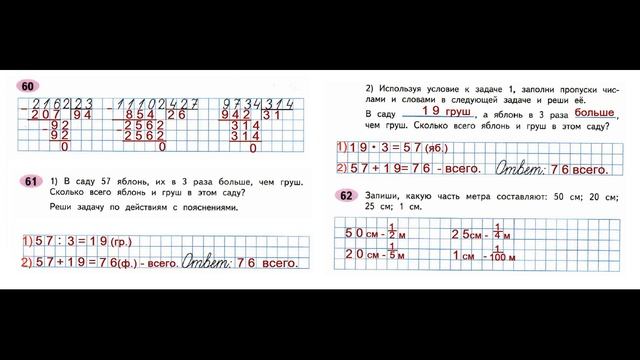 60
2162 23   11102 427   9734 314
207 94   854 26   942 31
92   2562   314
92   2562   314
0   0   0
61
1) В саду 57 яблонь, их в 3 раза больше, чем груш.
Сколько всего яблонь и груш в этом саду?
Реши задачу по действиям с пояснениями.
1) 57 : 3 = 19 (гр.)
2) 57 + 19 = 76 (ф.) - всего. Ответ: 76 всего.
2) Используя условие к задаче 1, заполни пропуски чис-
лами и словами в следующей задаче и реши её.
В саду 19 груш, а яблонь в 3 раза больше,
чем груш. Сколько всего яблонь и груш в этом саду?
1) 19 · 3 = 57 (яб.)
2) 57 + 19 = 76 - всего. Ответ: 76 всего.
62
Запиши, какую часть метра составляют: 50 см; 20 см;
25 см; 1 см.
50 см - 1/2 м   25 см - 1/4 м
20 см - 1/5 м   1 см - 1/100 м